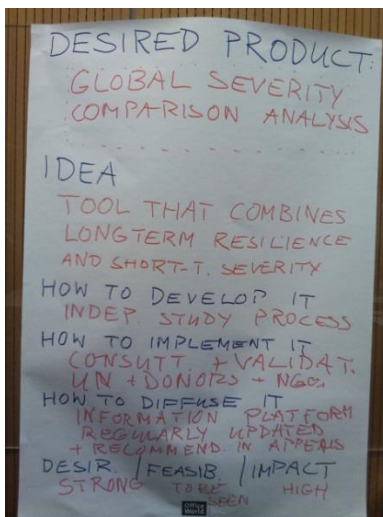 DESIRED PRODUCT:
GLOBAL SEVERITY
COMPARISON ANALYSIS
IDEA
TOOL THAT COMBINES
LONGTERM RESILIENCE
AND SHORT-T. SEVERITY
HOW TO DEVELOP IT
INDEP. STUDY PROCESS
HOW TO IMPLEMENT IT
CONSULT. + VALIDAT.
UN + DONORS + NGOs
HOW TO DIFFUSE IT
INFORMATION PLATFORM
REGULARLY UPDATED
+ RECOMMEND. IN APPEALS
DESIR. / FEASIB. / IMPACT
STRONG TO BE SEEN HIGH
Office World